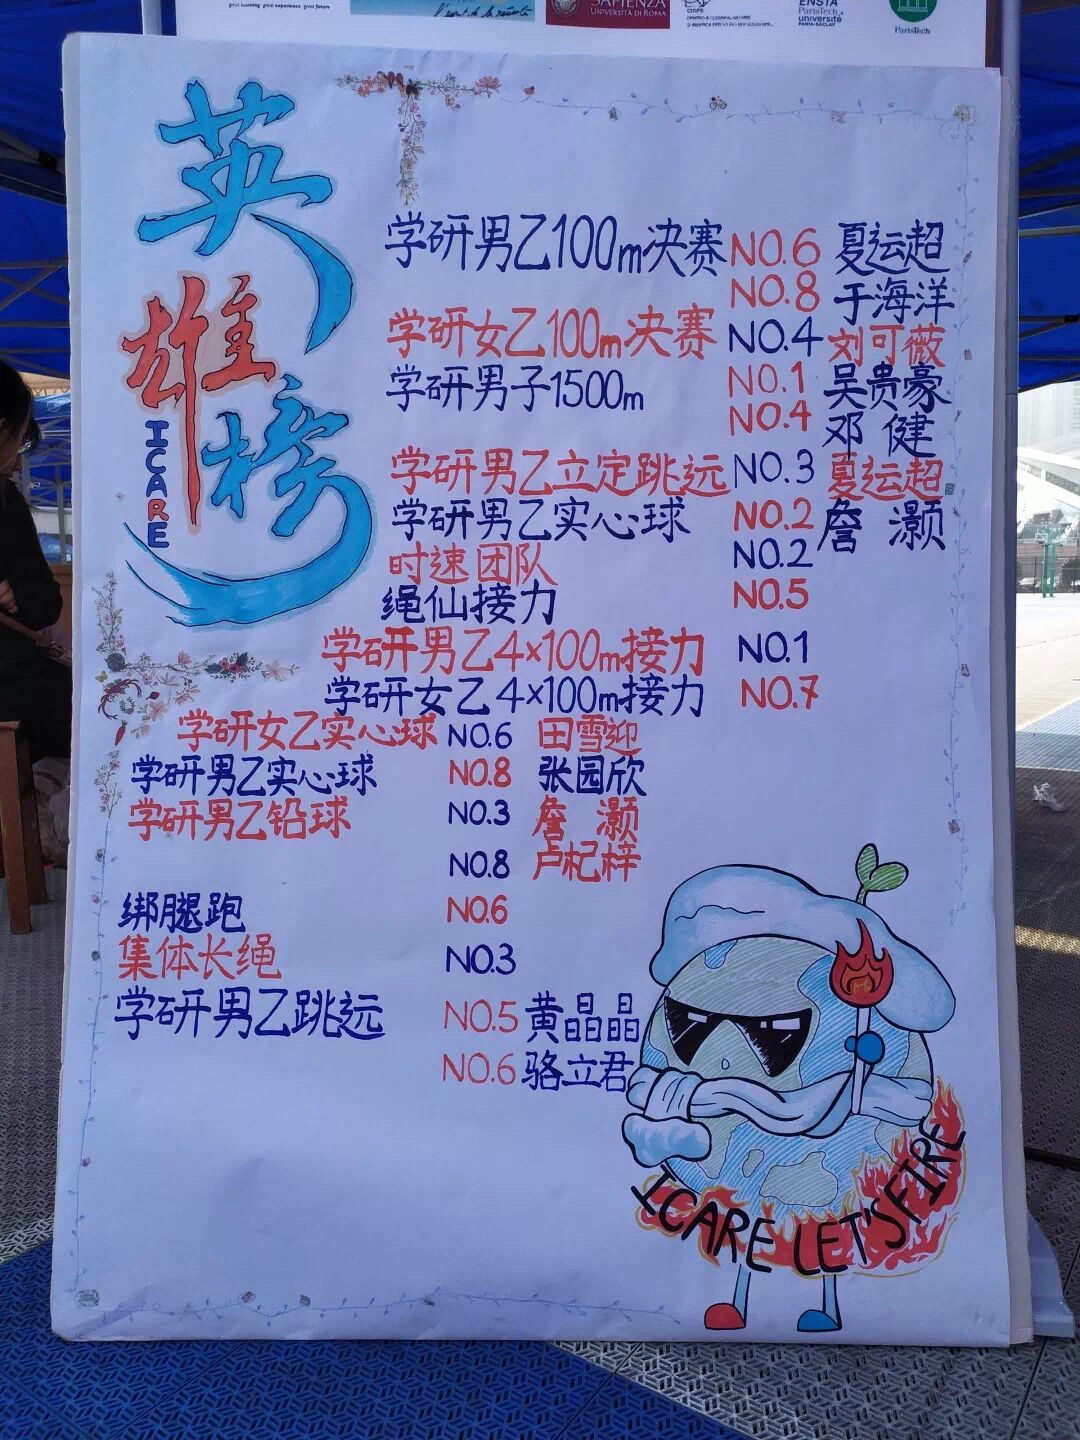 great learning great experience great future
SAPIENZA
UNIVERSITÀ DI ROMA
ENSTA
ParisTech
université
PARIS-SACLAY
ParisTech
英雄榜
ICARE
学研男乙100m决赛 NO.6 夏运超
NO.8 于海洋
学研女乙100m决赛 NO.4 刘可薇
学研男子1500m NO.1 吴贵豪
NO.4 邓健
学研男乙立定跳远 NO.3 夏运超
学研男乙实心球 NO.2 詹灏
时速团队 NO.2
绳仙接力 NO.5
学研男乙4×100m接力 NO.1
学研女乙4×100m接力 NO.7
学研女乙实心球 NO.6 田雪迎
学研男乙实心球 NO.8 张园欣
学研男乙铅球 NO.3 詹灏
NO.8 卢杞梓
绑腿跑 NO.6
集体长绳 NO.3
学研男乙跳远 NO.5 黄晶晶
NO.6 骆立君
ICARE LET'S FIRE